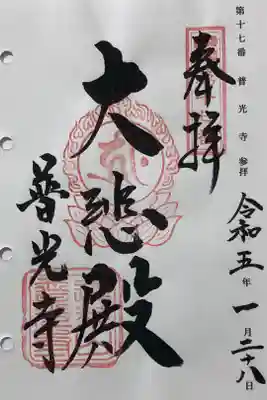 第十七番 普光寺 参拝
奉拝
令和五年一月二十八日
大悲殿
普光寺